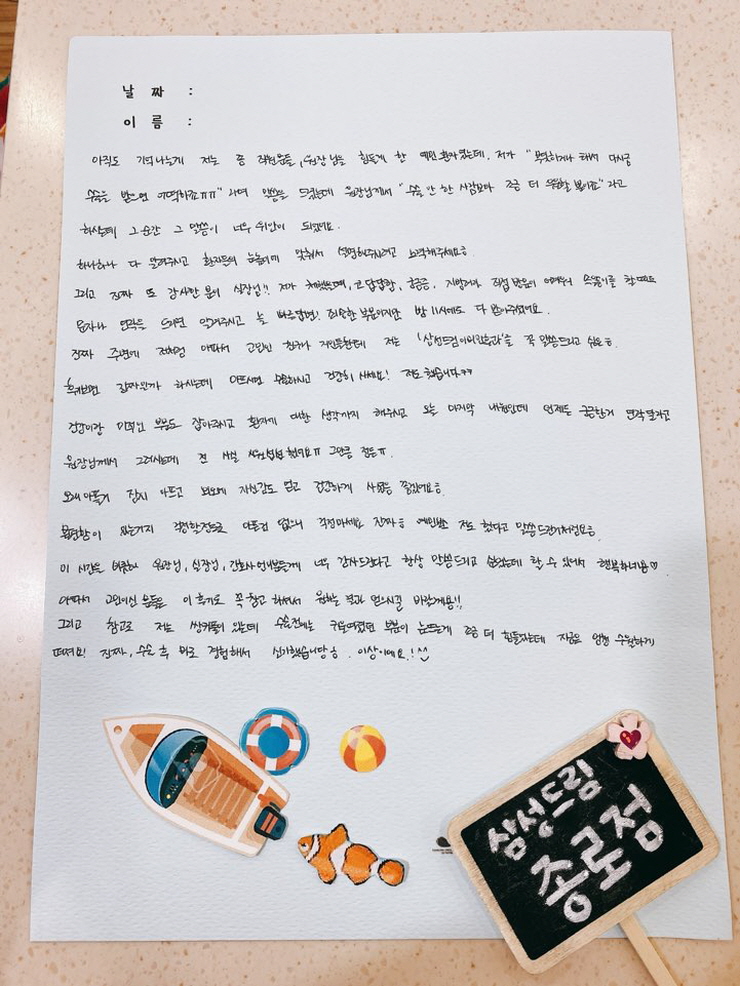 날 짜 :
이 름 :
아직도 기억나는게 저는 좀 직원분들, 원장님을 힘들게 한 예민환자였는데, 제가 "부작용나 해서 다시금
수술을 받으면 어떡하죠ㅠㅠ" 라며 말씀을 드렸는데 원장님께서 "수술 안 한 사람보다 조금 더 뿐이요" 라고
하셨는데 그 순간 그 말씀이 너무 위안이 되었어요.
하나하나 다 알려주시고 환자분의 눈높이에 맞춰서 설명해주시려고 노력해주세요
그리고 진짜 또 감사한 분이 실장님!! 제가 답답함, 궁금증, 직접 방문이 어려워서 때마다
문자나 연락을 드리면 알려주시고 늘 빠른답변! 죄송한 부분이지만 밤 11시에도 다 받아주셨어요.
진짜 주변에 저처럼 아파서 고민인 친구나 지인들한테 저는 '삼성드림이비인후과'를 꼭 말씀드리고 싶은
하시는데 아프시면 수술하시고 건강히 사세요! 저도 했습니다ㅋㅋ
건강이랑 미적인 부분도 잡아주시고 환자에 대한 생각까지 해주시고 오늘 마지막 내원인데 언제든 궁금한거 연락달라고
원장님께서 그러시는데 전 사실 했어요ㅠ 그만큼 정든ㅠ.
오래 아플거 잠시 아프고 외모에 자신감도 얻고 건강하게 사셨음 좋겠어요
불편함이 있는거지 걱정할정도로 아픈건 없으니 걱정마세요 진짜 예민한 저도 했다고 말씀드린거처럼요
이 시간을 비롯하여 원장님, 실장님, 간호사언니분들께 너무 감사드린다고 항상 말씀드리고 싶었는데 할 수 있어서 행복하네용♡
아파서 고민이신 분들은 이 후기도 꼭 참고 하셔서 원하는 결과 얻으시길 바랄게용!!
그리고 참고로 저는 쌍커풀이 있는데 수술전에는 부분이 눈뜨는게 조금 더 힘들었는데 지금은 엄청 수월하게
떠져요! 진짜, 수술 후 바로 경험해서 신기했습니당 . 이상이에요.!^^
삼성드림
종로점